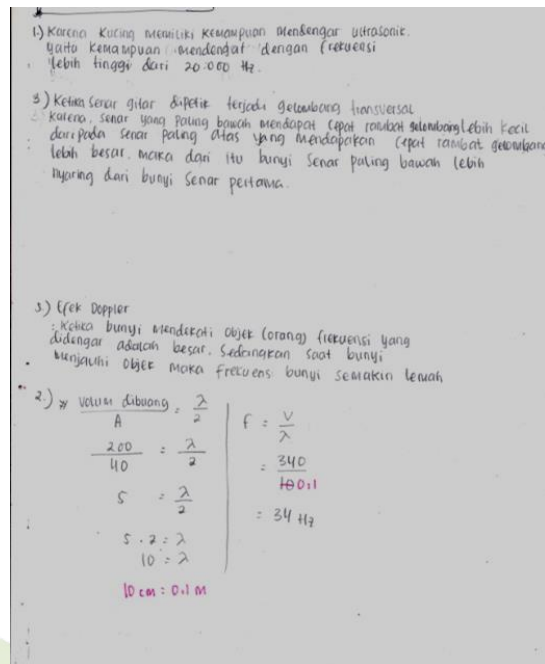 1.) Karena Kucing memiliki kemampuan mendengar ultrasonic.
yaitu kemampuan mendengar dengan frekuensi
lebih tinggi dari 20.000 Hz.
3) Ketika Senar gitar dipetik terjadi gelombang transversal
Karena, senar yang paling bawah mendapat cepat rambat gelombang lebih kecil
daripada senar paling atas yang mendapatkan cepat rambat gelombang
lebih besar. maka dari itu bunyi senar paling bawah lebih
nyaring dari bunyi senar pertama.
3.) Efek Doppler
: Ketika bunyi mendekati objek (orang) frekuensi yang
didengar adalah besar. Sedangkan saat bunyi
menjauhi objek maka frekuens bunyi semakin lemah
2.) » Volum dibuang / A = λ / 2
200 / 40 = λ / 2
5 = λ / 2
5 . 2 = λ
10 = λ
10 cm = 0.1 m
f = V / λ
= 340 / 10 0.1
= 34 Hz